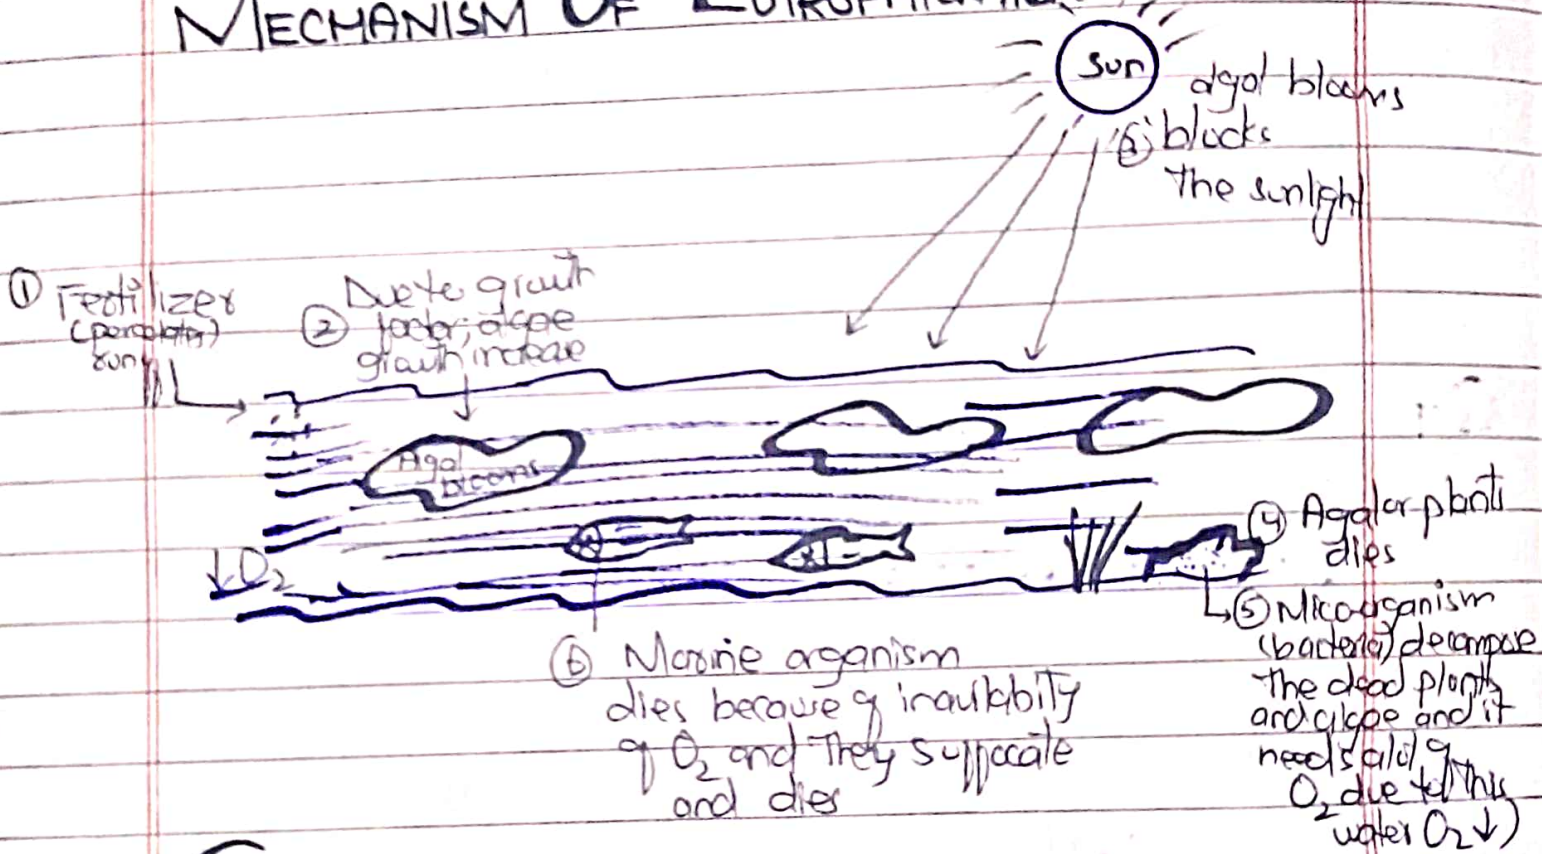 MECHANISM OF
Sun
algal blooms
③ blocks
the sunligh
① Fertilizer
run
② Due to growth
factor; algae
growth increase
Agal
blooms
↓O₂
④ Agal or plants
dies
⑤ Micoorganism
(bacteria) decompose
the dead plants
and algae and it
needs alot of
O₂ due to this
water O₂ ↓)
⑥ Marine organism
dies because of inavilability
of O₂ and They suffocate
and dies